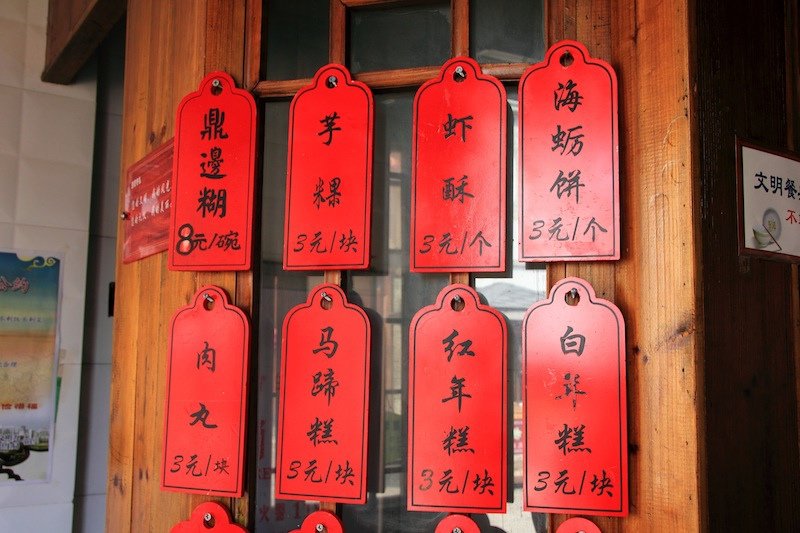 鼎邊糊
8元/碗
芋粿
3元/块
虾酥
3元/个
海蛎饼
3元/个
文明餐
不
肉丸
3元/块
马蹄糕
3元/块
红年糕
3元/块
白年糕
3元/块